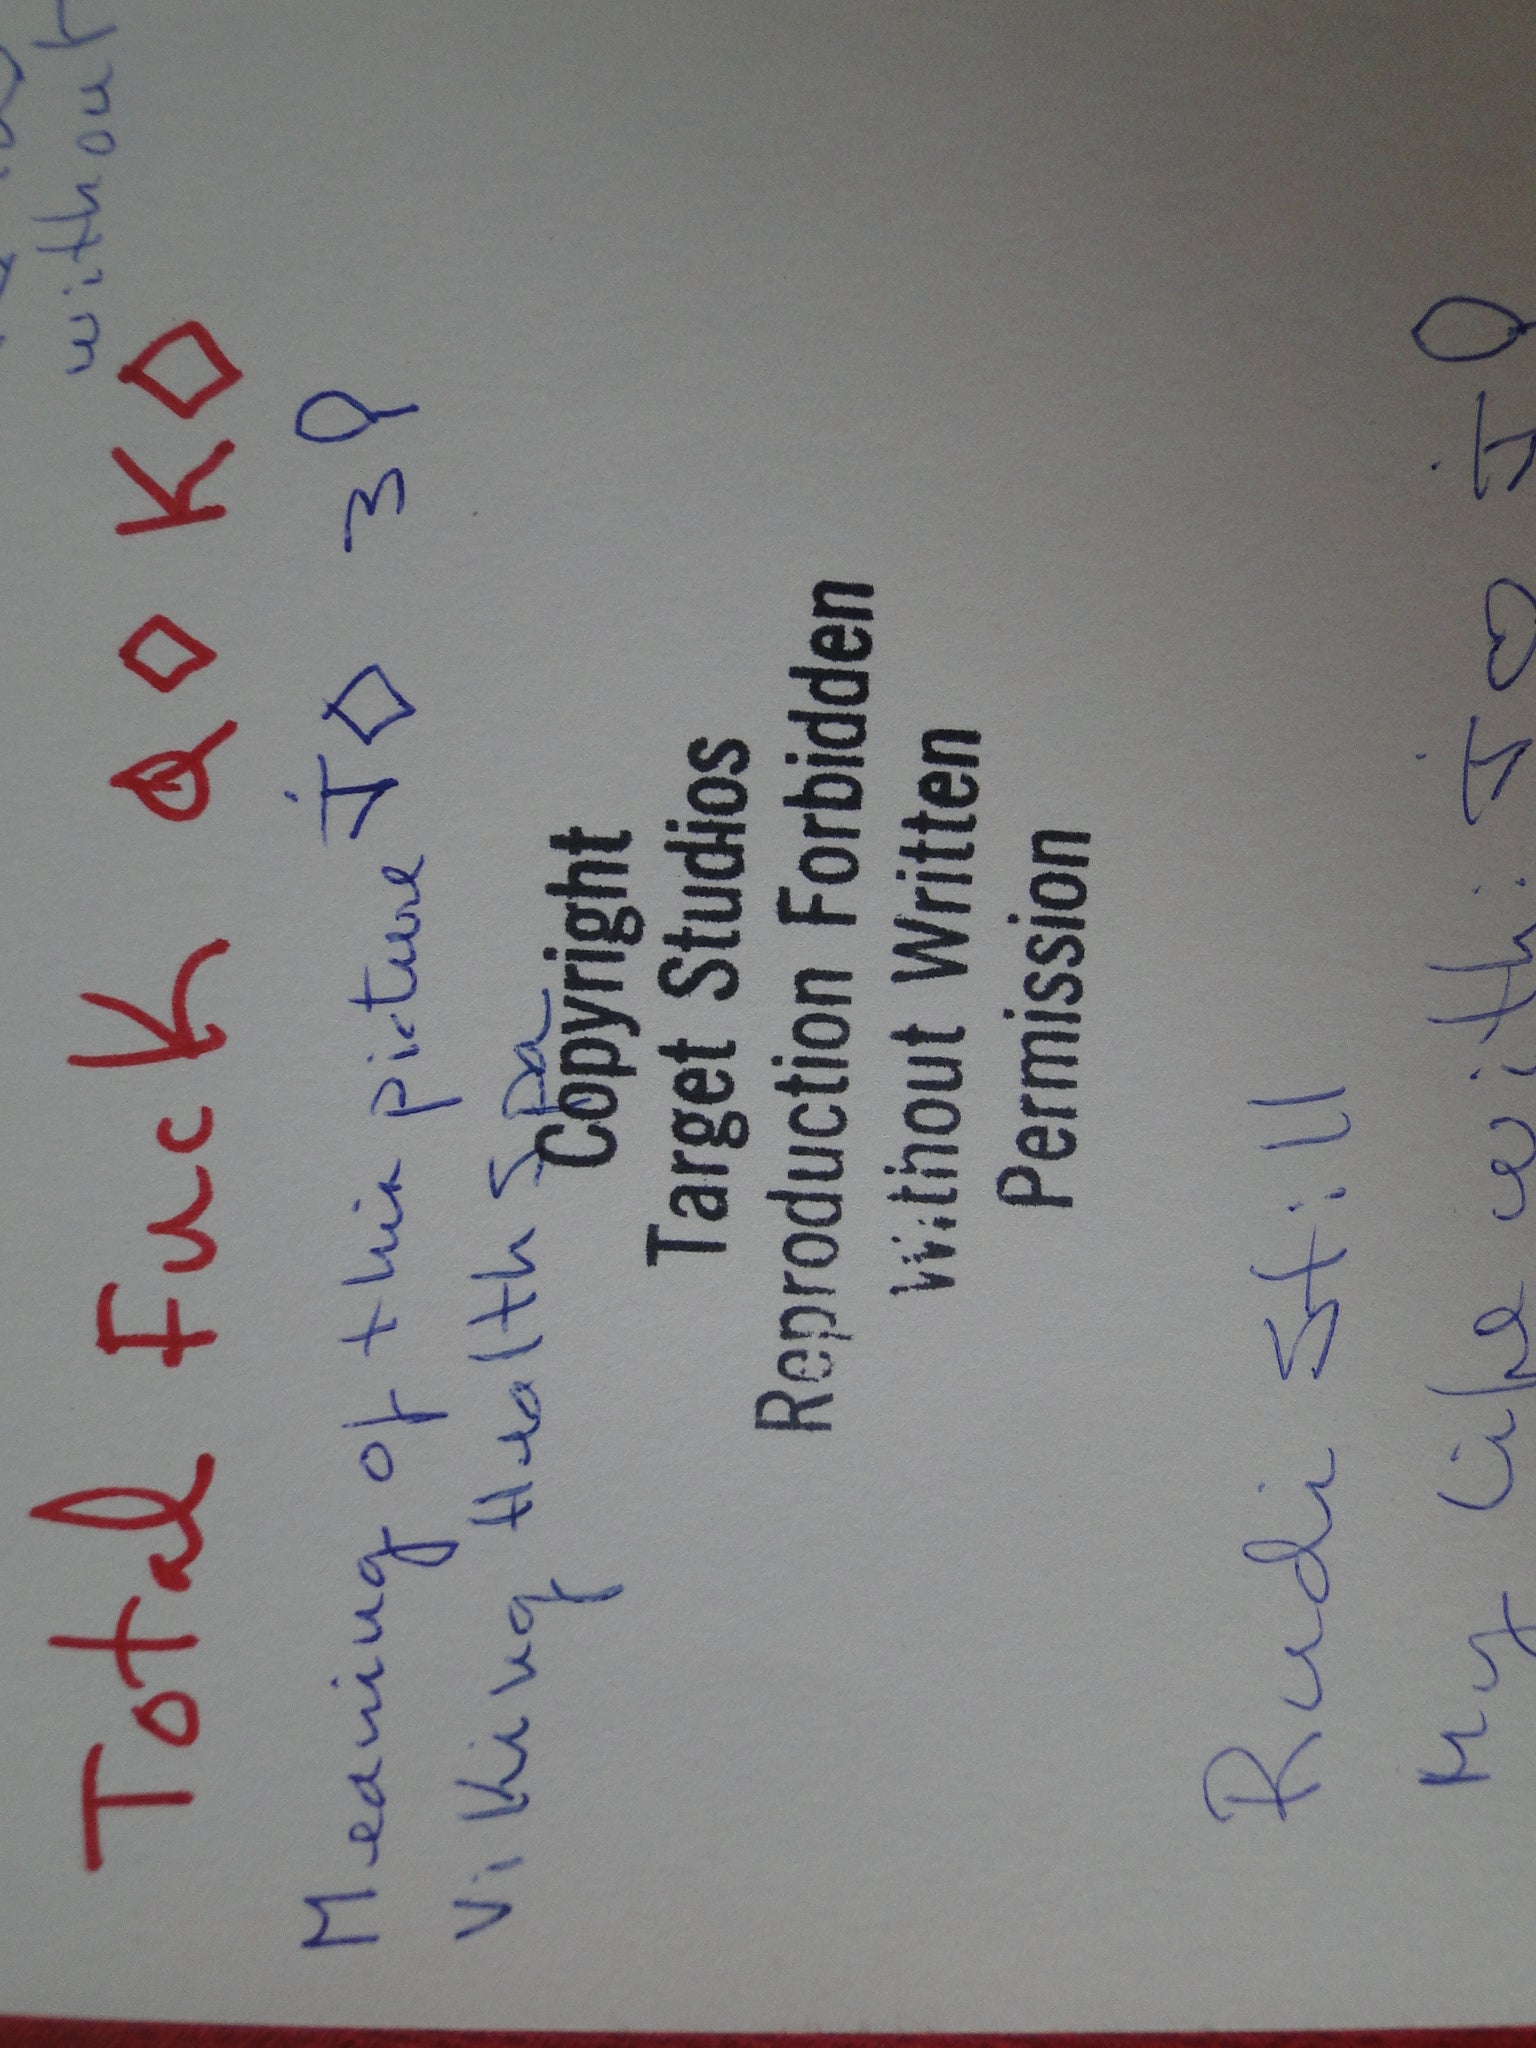 without
Total Fuck Q◇ K◇
Meaning of this picture J◇ 3
Viking Health Spa
Copyright
Target Studios
Reproduction Forbidden
Without Written
Permission
Rudi Still
My Life with: J♡ J